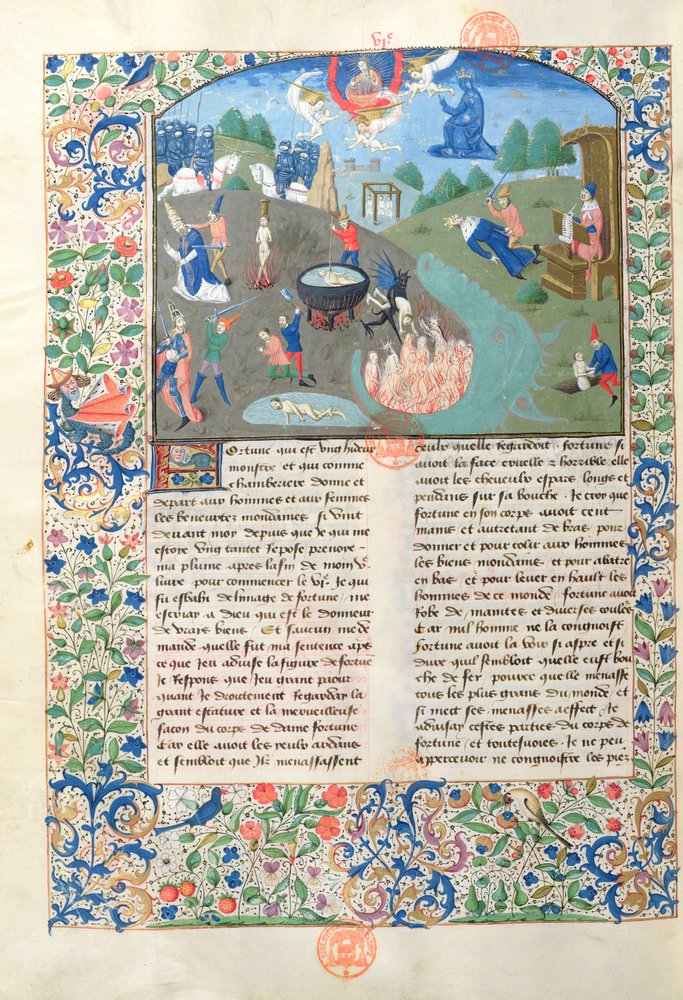 VIe
Fortune qui est ung hideux
monstre et qui comme
chamberiere donne et
depart aux hommes et aux femmes
les beneuretez mondaines si vint
devant moy depuis que je qui me
estoye ung tantet repose prenoye
ma plume apres la fin de mon Ve
livre pour commencer le VIe Je qui
fu esbahi de limage de fortune me
escriay a dieu qui est le donneur
de vrais biens Et saucun me de
mande quelle fut ma sentence apz
ce que jeu advise la figure de fortue
Je respons que jeu grant paour
quant je droutement regarday la
grant estature et la merveilleuse
facon du corps de dame fortune
Car elle avoit les yeulx ardans
et sembloit que ilz menassassent
ceulx quelle regardoit fortune si
avoit la face cruelle et horrible elle
avoit les cheveulx espars longs et
pendans sur sa bouche Je croy que
fortune en son corps avoit cent
mains et autretant de bras pour
donner et pour tolir aux hommes
les biens mondains et pour abatre
en bas et pour lever en hault les
hommes de ce monde fortune avoit
robe de maintes et diverses coulers
Car nul homme ne la congnoist
fortune avoit la voix si aspre et si
dure quil sembloit quelle eust bou
che de fer pource quelle menasse
tous les plus grans du monde et
si mect ses menasses a effect Je
advisay cestes parties du corps de
fortune et toutesvoies Je ne peu
appercevoir ne congnoistre les piez